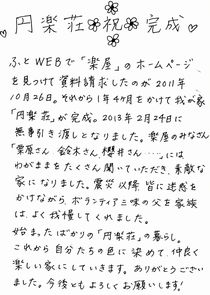 円楽荘 祝 完成
ふとWEBで「楽屋」のホームページ
を見つけて資料請求したのが2011年
10月26日。それから1年4ケ月をかけて我が家
「円楽荘」が完成。2013年2月24日に
無事引き渡しとなりました。楽屋のみなさん
「栗原さん、金鈴木さん、櫻井さん・・・」には
わがままをたくさん聞いていただき、素敵な
家になりました。震災以降 皆に迷惑を
かけながら、ボランティア三昧の父を家族
は、よく我慢してくれました。
始またばかりの「円楽荘」の暮らし。
これから自分たちの色に染めて、仲良く
楽しい家にしていきます。ありがとうござい
ました。今後ともよろしくお願いします!